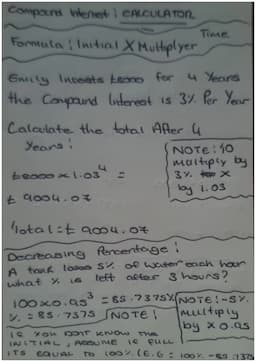 Compound Interest : CALCULATOR
Formula : Initial X Multiplyer Time
Emily Invests £8000 for 4 Years
the Compound Interest is 3% Per Year
Calculate the total After 4
Years :
NOTE : 10
multiply by
3% X
by 1.03
£8000 x 1.03⁴ =
£ 9004.07
Total = £ 9004.07
Decreasing Percentage :
A tank loses 5% of water each hour
what % is left after 3 hours?
100 x 0.95³ = 85.7375%
% = 85.7375
NOTE : -5%
multiply
by x 0.95
NOTE :
IF YOU DON'T KNOW THE
INITIAL, ASSUME IS FULL
ITS EQUAL TO 100% (E.G : 100% -